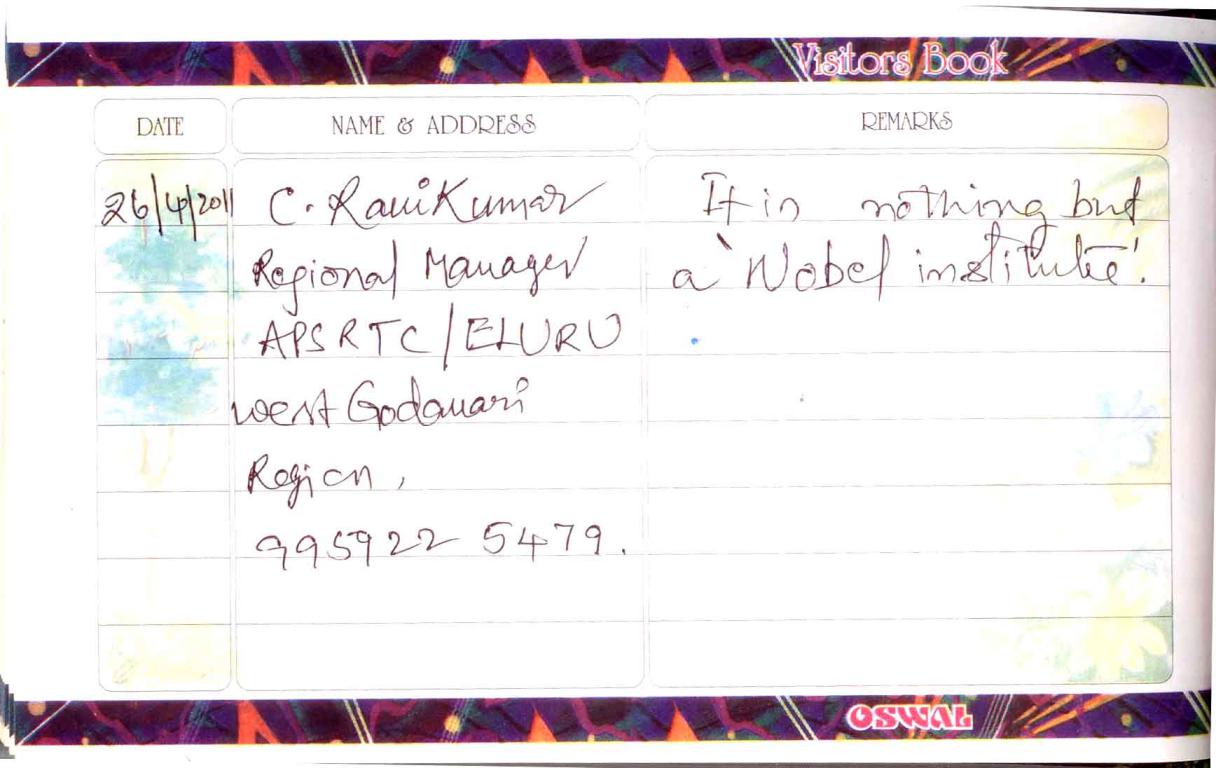 Visitors Book
DATE
NAME & ADDRESS
REMARKS
26/4/2011
C. Ravi Kumar
Regional Manager
APSRTC/ELURU
West Godavari
Region,
995922 5479.
It is nothing but
a 'Nobel institute'.
OSWAL